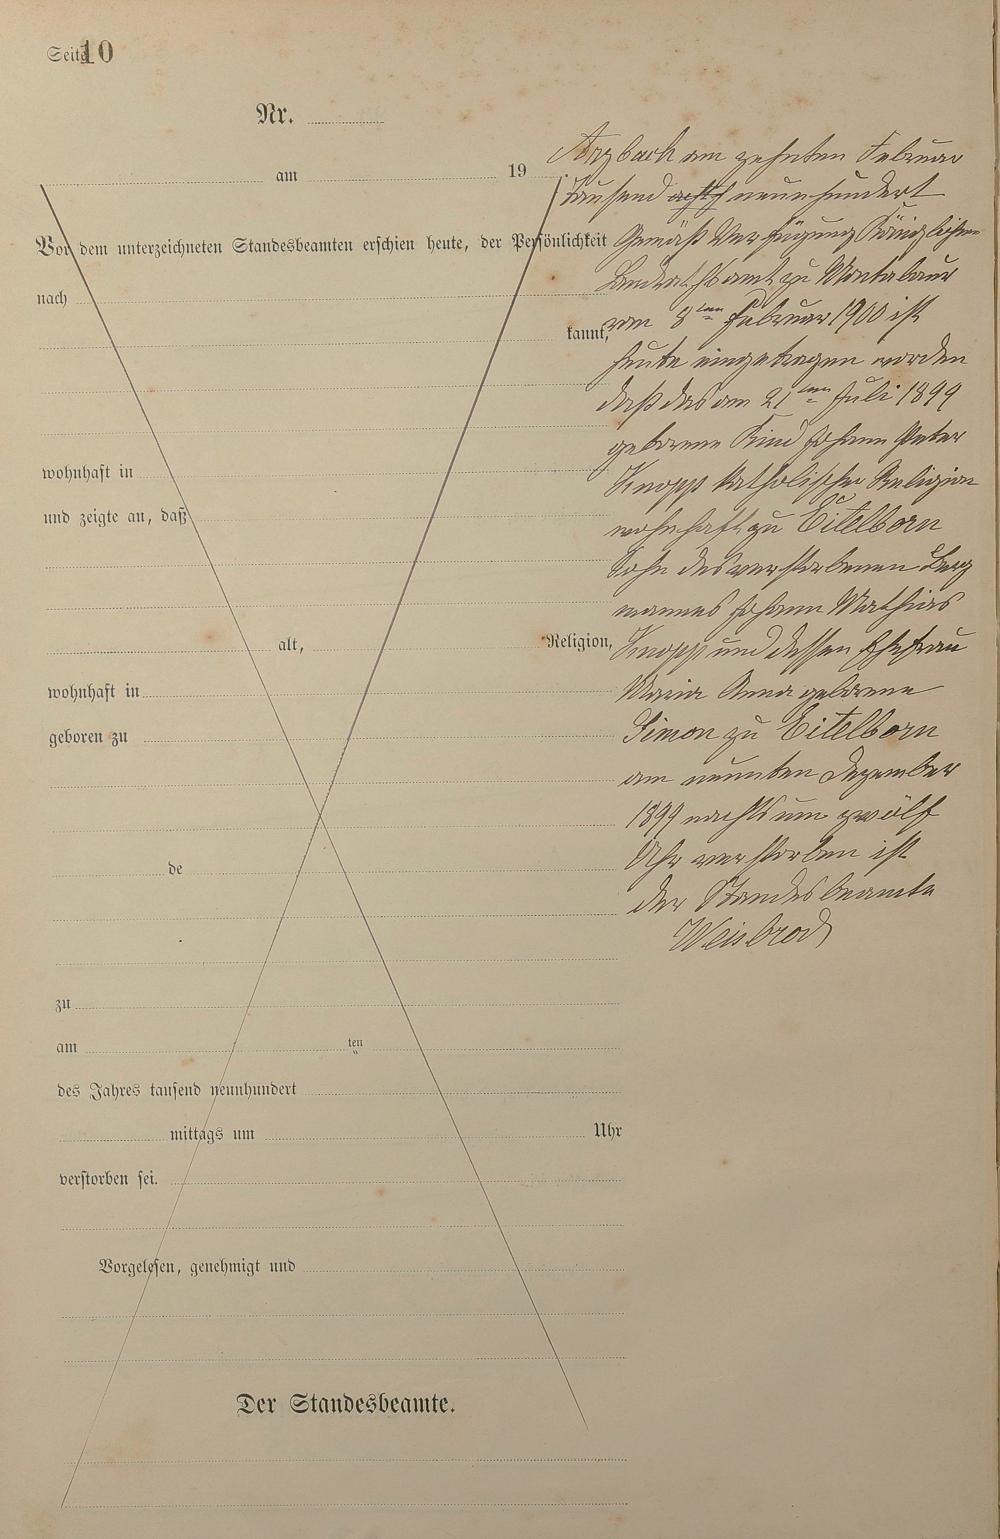 Seite 10
Nr.
am 19
Vor dem unterzeichneten Standesbeamten erschien heute, der Persönlichkeit
nach
kannt,
wohnhaft in
und zeigte an, daß
alt, Religion,
wohnhaft in
geboren zu
de
zu
am ten
des Jahres tausend neunhundert
mittags um Uhr
verstorben sei.
Vorgelesen, genehmigt und
Der Standesbeamte.
Arzbach am zehnten Februar
tausend acht neunhundert
Gemäß Verfügung Königlichen
Landrathsamt zu Montabaur
vom 8ten Februar 1900 ist
heute eingetragen worden
daß das am 21ten Juli 1899
geborene Kind Johann Peter
Knopp katholischer Religion
wohnhaft zu Eitelborn
Sohn des verstorbenen Berg
mannes Johann Mathias
Knopp und dessen Ehefrau
Maria Anna geborene
Simon zu Eitelborn
am neunten Dezember
1899 nachts um zwölf
Uhr verstorben ist
der Standesbeamte
Weisbrod